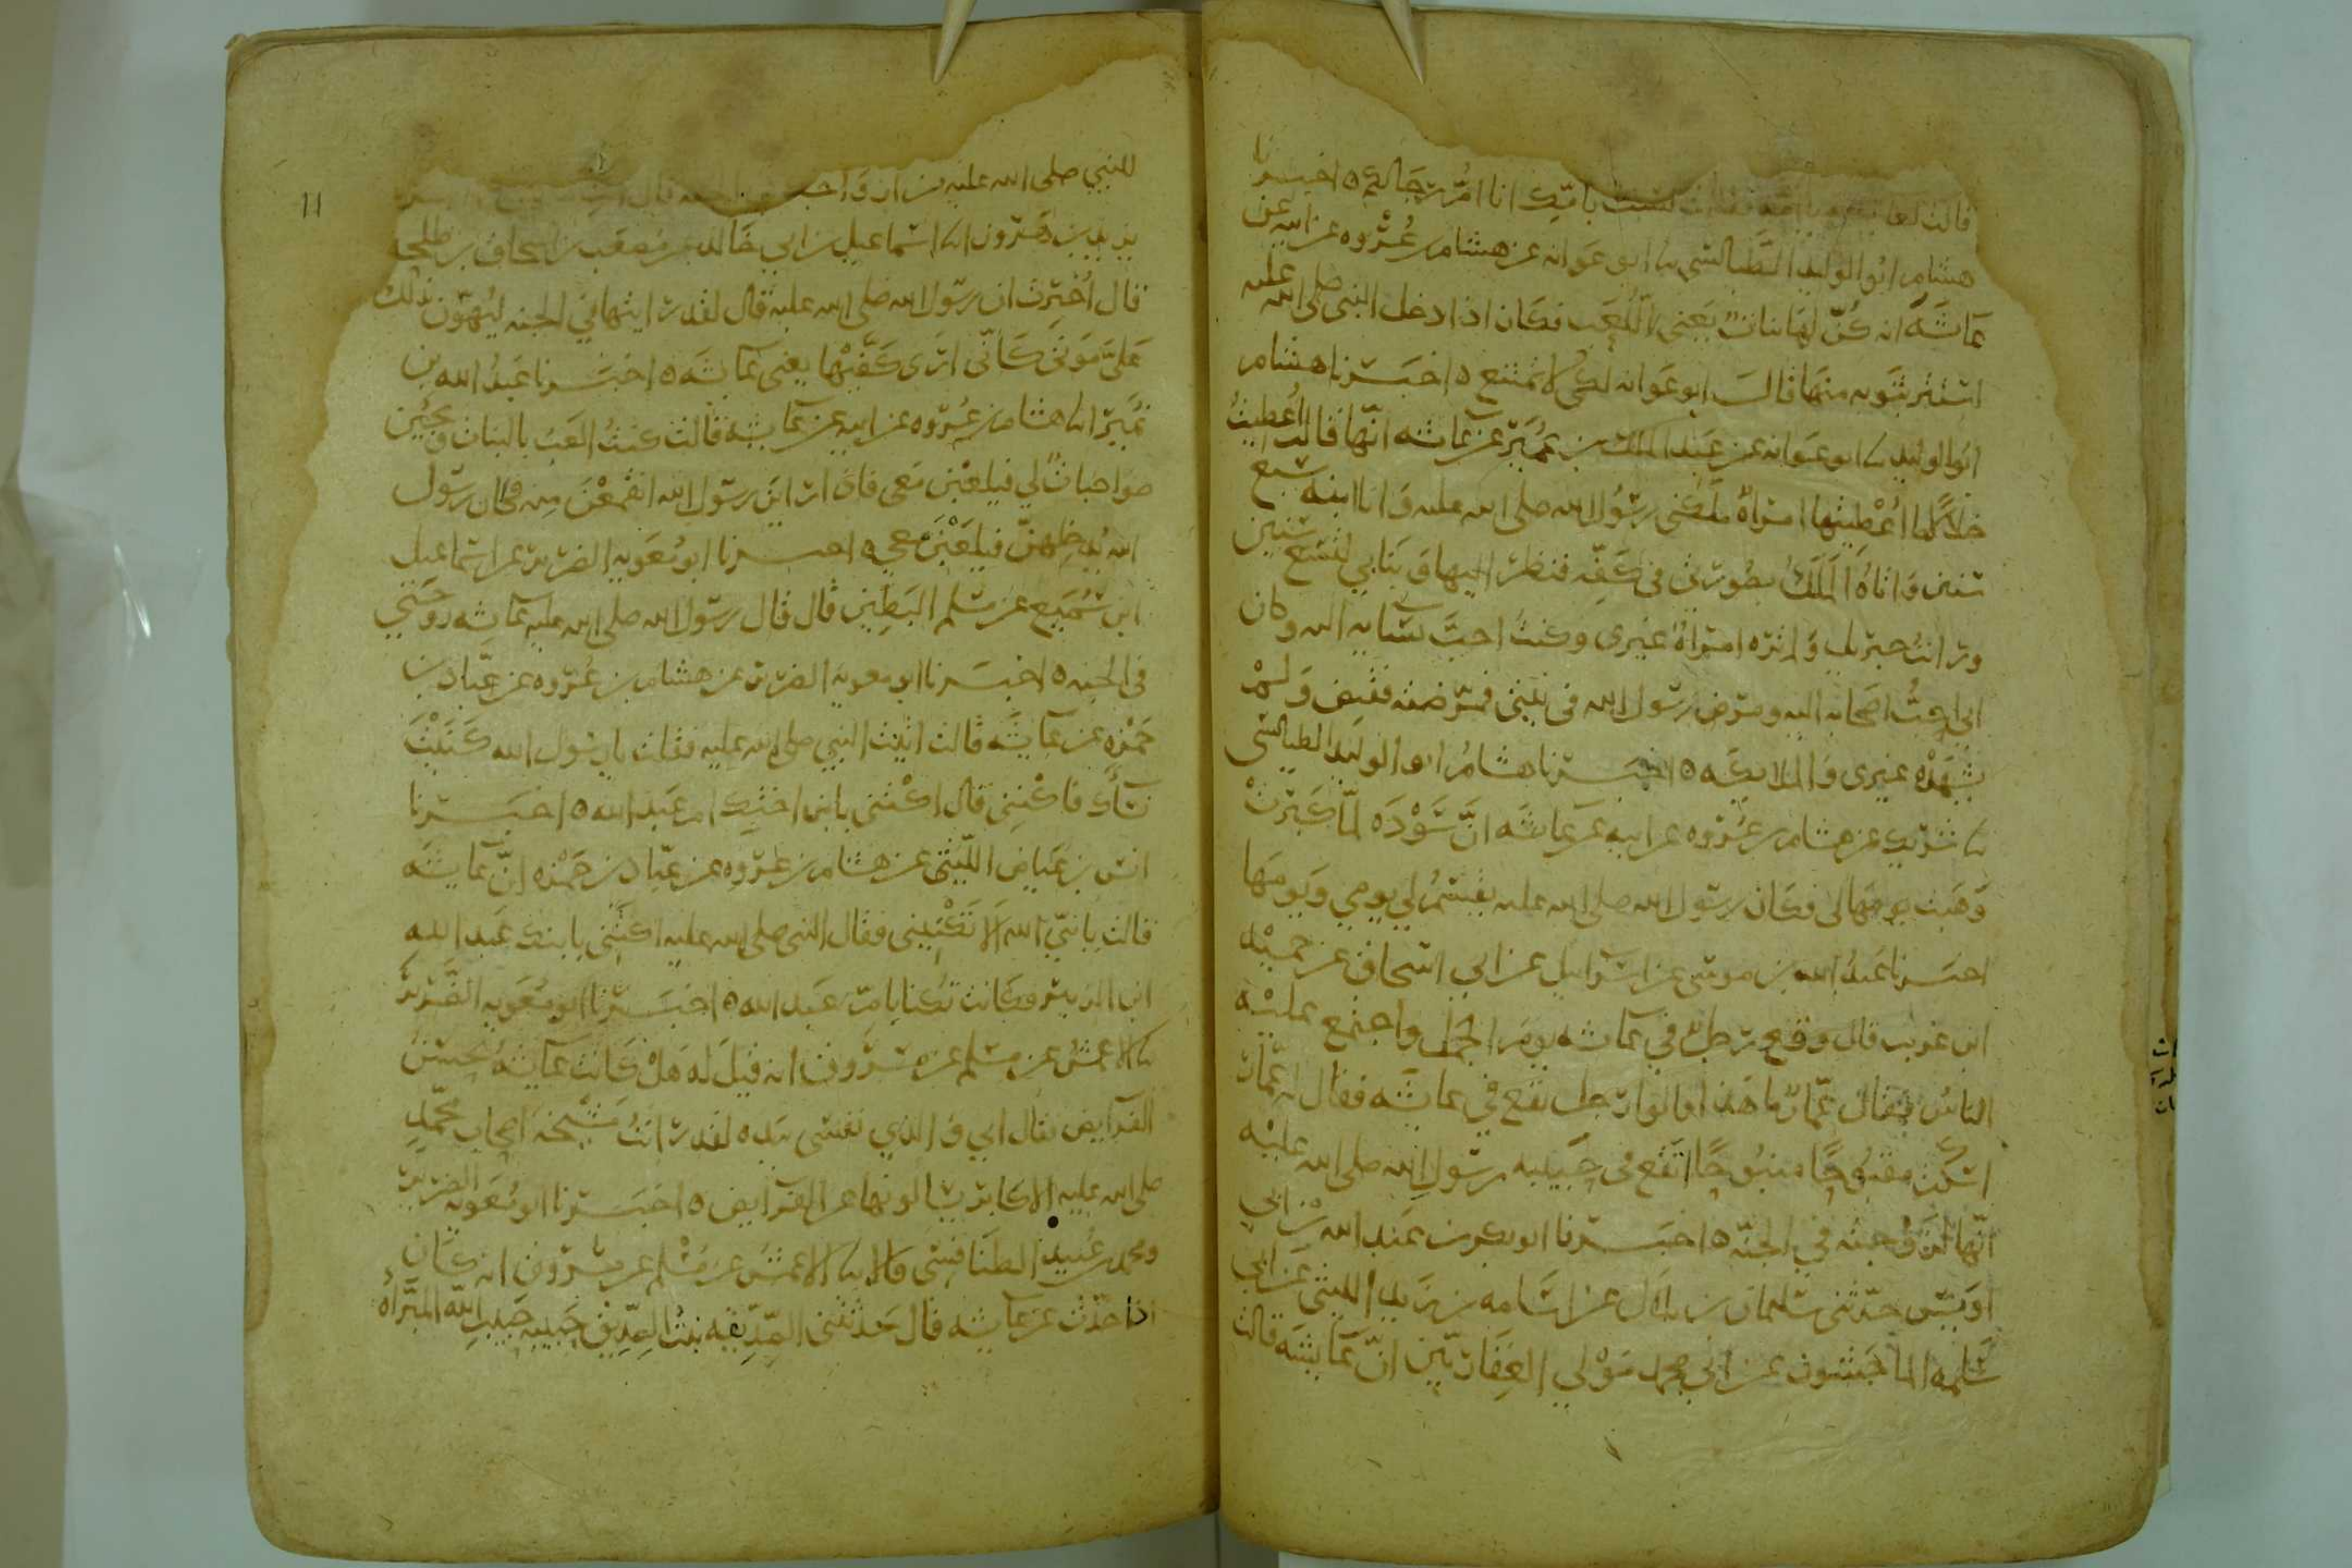 قالت لها امراة يا امه فقالت لست بامك انا ام رجالكم ٥ اخبرنا
هشام ابو الوليد الطيالسي نا ابو عوانه عن هشام بن عروه عن ابيه عن
عائشه انه كن لها بنات يعني اللعب فكان اذا دخل النبي صلى الله عليه
استتر بثوبه منها قال ابو عوانه لكي لا تمتنع ٥ اخبرنا هشام
ابو الوليد نا ابو عوانه عن عبد الملك بن عمير عن عائشه انها قالت اعطيت
خلالا ما اعطيتها امراة ملكني رسول الله صلى الله عليه وانا ابنه سبع
سنين واتاه الملك بصورتي في كفه فنظر اليها وبنا بي لتسع سنين
ورايت جبريل ولم تره امراة غيري وكنت احب نسايه اليه وكان
ابي احب اصحابه اليه ومرض رسول الله في بيتي فمرضته فقبض ولم
يشهده غيري والملايكه ٥ اخبرنا هشام ابو الوليد الطيالسي
نا شريك عن هشام بن عروه عن ابيه عن عائشه ان سوده لما كبرت
وهبت يومها لي فكان رسول الله صلى الله عليه يقسم لي يومي ويومها
اخبرنا عبيد الله بن موسى عن اسرائيل عن ابي اسحاق عن حميد
ابن عريب قال وقع رجل في عائشه يوم الجمل واجتمع عليه
الناس فقال عمار ما هذا قالوا رجل يقع في عائشه فقال له عمار
اسكت مقبوحا منبوحا اتقع في حبيبه رسول الله صلى الله عليه
انها لزوجته في الجنه ٥ اخبرنا ابو بكر بن عبد الله بن ابي
اويس حدثني سليمان بن بلال عن اسامه بن زيد الليثي عن ابي
سلمه الماجشون عن ابي محمد مولى الغفاريين ان عائشه قالت
11
للنبي صلى الله عليه من ازواجك في الجنه قال انت
يزيد بن هرون انا اسماعيل بن ابي خالد عن مصعب بن اسحاق بن طلحه
قال اخبرت ان رسول الله صلى الله عليه قال لقد رايتها في الجنه ليهون ذلك
علي موتي كاني ارى كفيها يعني عائشه ٥ اخبرنا عبد الله بن
نمير انا هشام بن عروه عن ابيه عن عائشه قالت كنت العب بالبنات ويجئن
صواحبات لي فيلعبن معي فاذا راين رسول الله انقمعن منه فكان رسول
الله يدخلهن فيلعبن معي ٥ اخبرنا ابو معويه الضرير عن اسماعيل
ابن سميع عن مسلم البطين قال قال رسول الله صلى الله عليه عائشه زوجتي
في الجنه ٥ اخبرنا ابو معويه الضرير عن هشام بن عروه عن عباد بن
حمزه عن عائشه قالت اتيت النبي صلى الله عليه فقلت يا رسول الله كنيت
نساك فاكنني قال اكتني بابن اختك ام عبد الله ٥ اخبرنا
انس بن عياض الليثي عن هشام بن عروه عن عباد بن حمزه ان عائشه
قالت يا نبي الله الا تكنيني فقال النبي صلى الله عليه اكتني بابنك عبد الله
ابن الزبير وكانت تكنا بام عبد الله ٥ اخبرنا ابو معويه الضرير
نا الاعمش عن مسلم عن مسروق انه قيل له هل كانت عائشه تحسن
الفرايض فقال اي والذي نفسي بيده لقد رايت مشيخه اصحاب محمد
صلى الله عليه الاكابر يسالونها عن الفرايض ٥ اخبرنا ابو معويه الضرير
ومحمد بن عبيد الطنافسي قالا نا الاعمش عن مسلم عن مسروق انه كان
اذا حدث عن عائشه قال حدثتني الصديقه بنت الصديق حبيبه حبيب الله المبراه